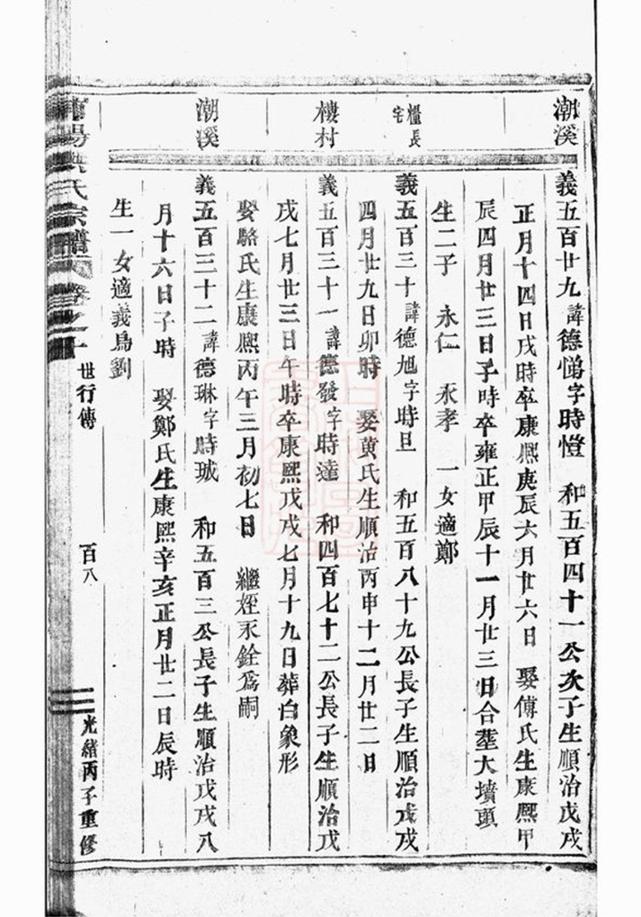 潮溪
義五百廿九 諱德愷字時愷 和五百四十一公次子生順治戊戌
正月十四日戌時卒康熙庚辰六月廿六日 娶傅氏生康熙甲
辰四月廿三日子時卒雍正甲辰十一月廿三日合塟大墳頭
生二子 永仁 永孝 一女適鄭
糧長宅
義五百三十 諱德旭字時旦 和五百八十九公長子生順治戊戌
四月廿九日卯時 娶黄氏生順治丙申十二月廿二日
樓村
義五百三十一 諱德發字時達 和四百七十二公長子生順治戊
戌七月廿三日午時卒康熙戊戌七月十九日葬白象形
娶駱氏生康熙丙午三月初七日 繼姪永銓為嗣
潮溪
義五百三十二 諱德琳字時珹 和五百三公長子生順治戊戌八
月十六日子時 娶鄭氏生康熙辛亥正月廿二日辰時
生一女適義烏劉
陽 氏宗譜 卷之 世行傳 百八 光緒丙子重修